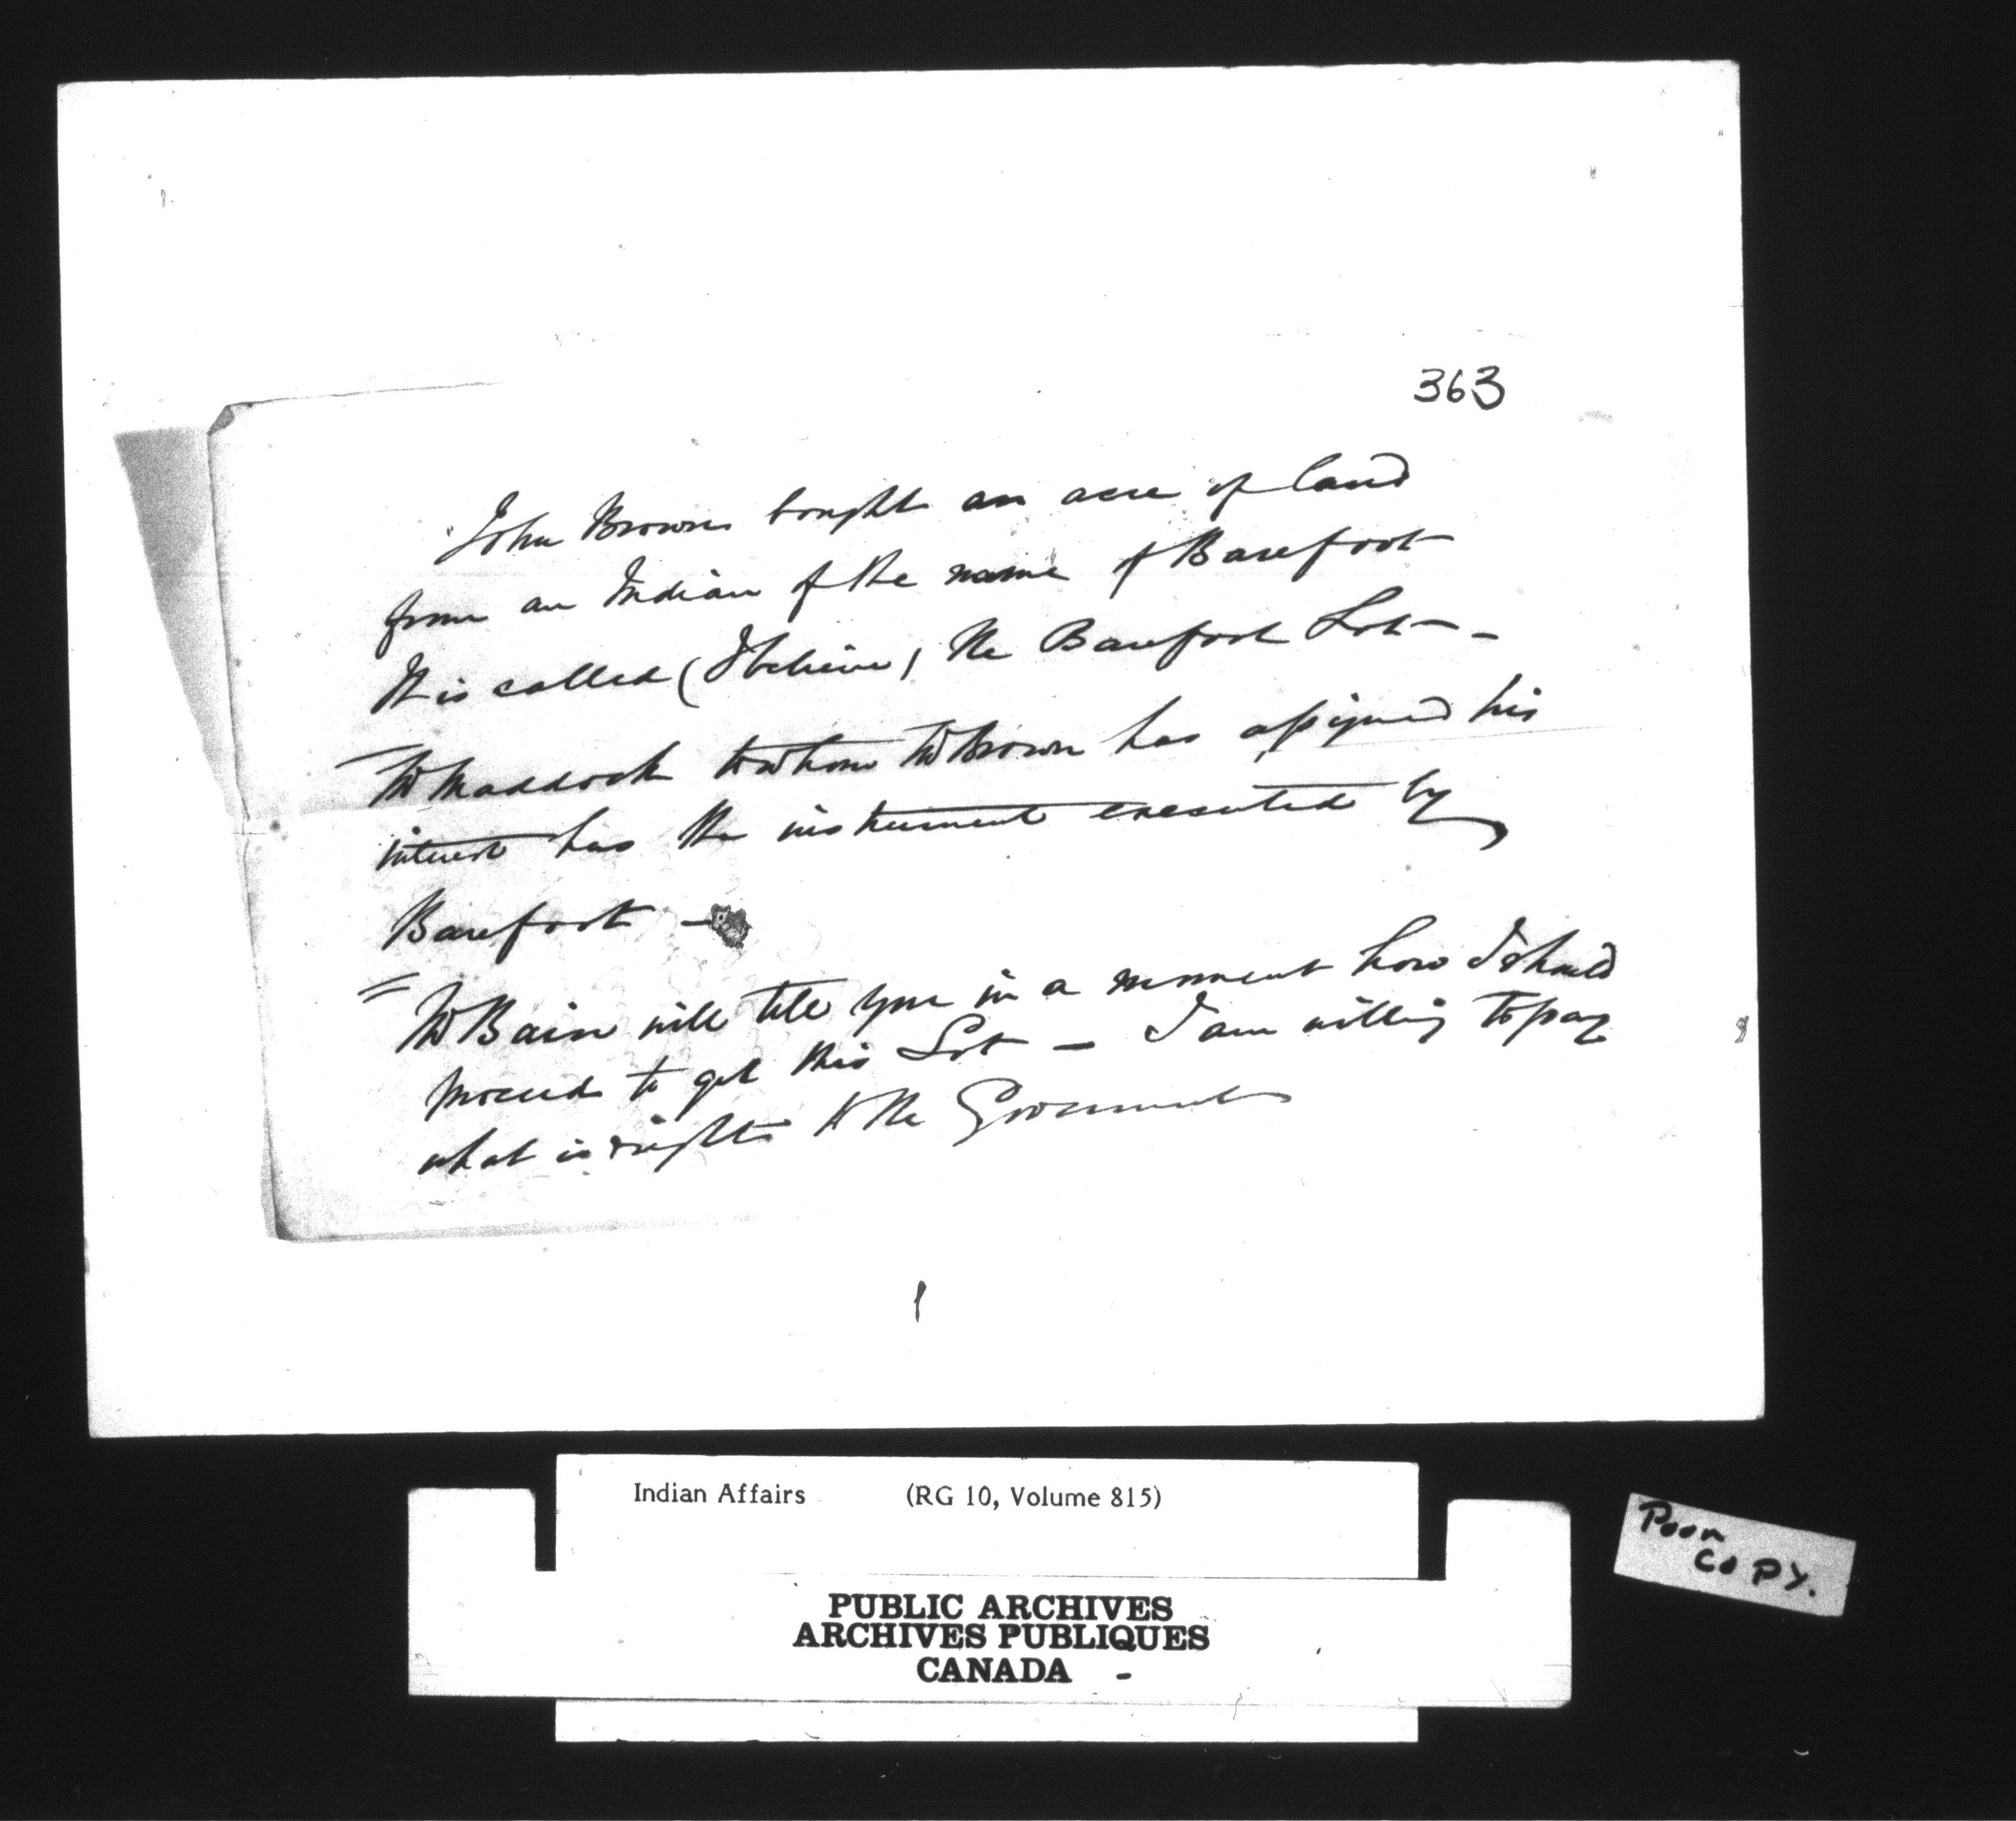 363
John Brown bought an acre of land
from an Indian of the name of Barefoot
It is called (I believe) the Barefoot Lot - -
Mr Maddock to whom Mr Brown has assigned his
interest has the instrument executed by
Barefoot -
= Mr Bain will tell you in a moment how I should
proceed to get this Lot - I am willing to pay
what is right to the Government
Indian Affairs (RG 10, Volume 815)
PUBLIC ARCHIVES
ARCHIVES PUBLIQUES
CANADA -
Poor
COPY.